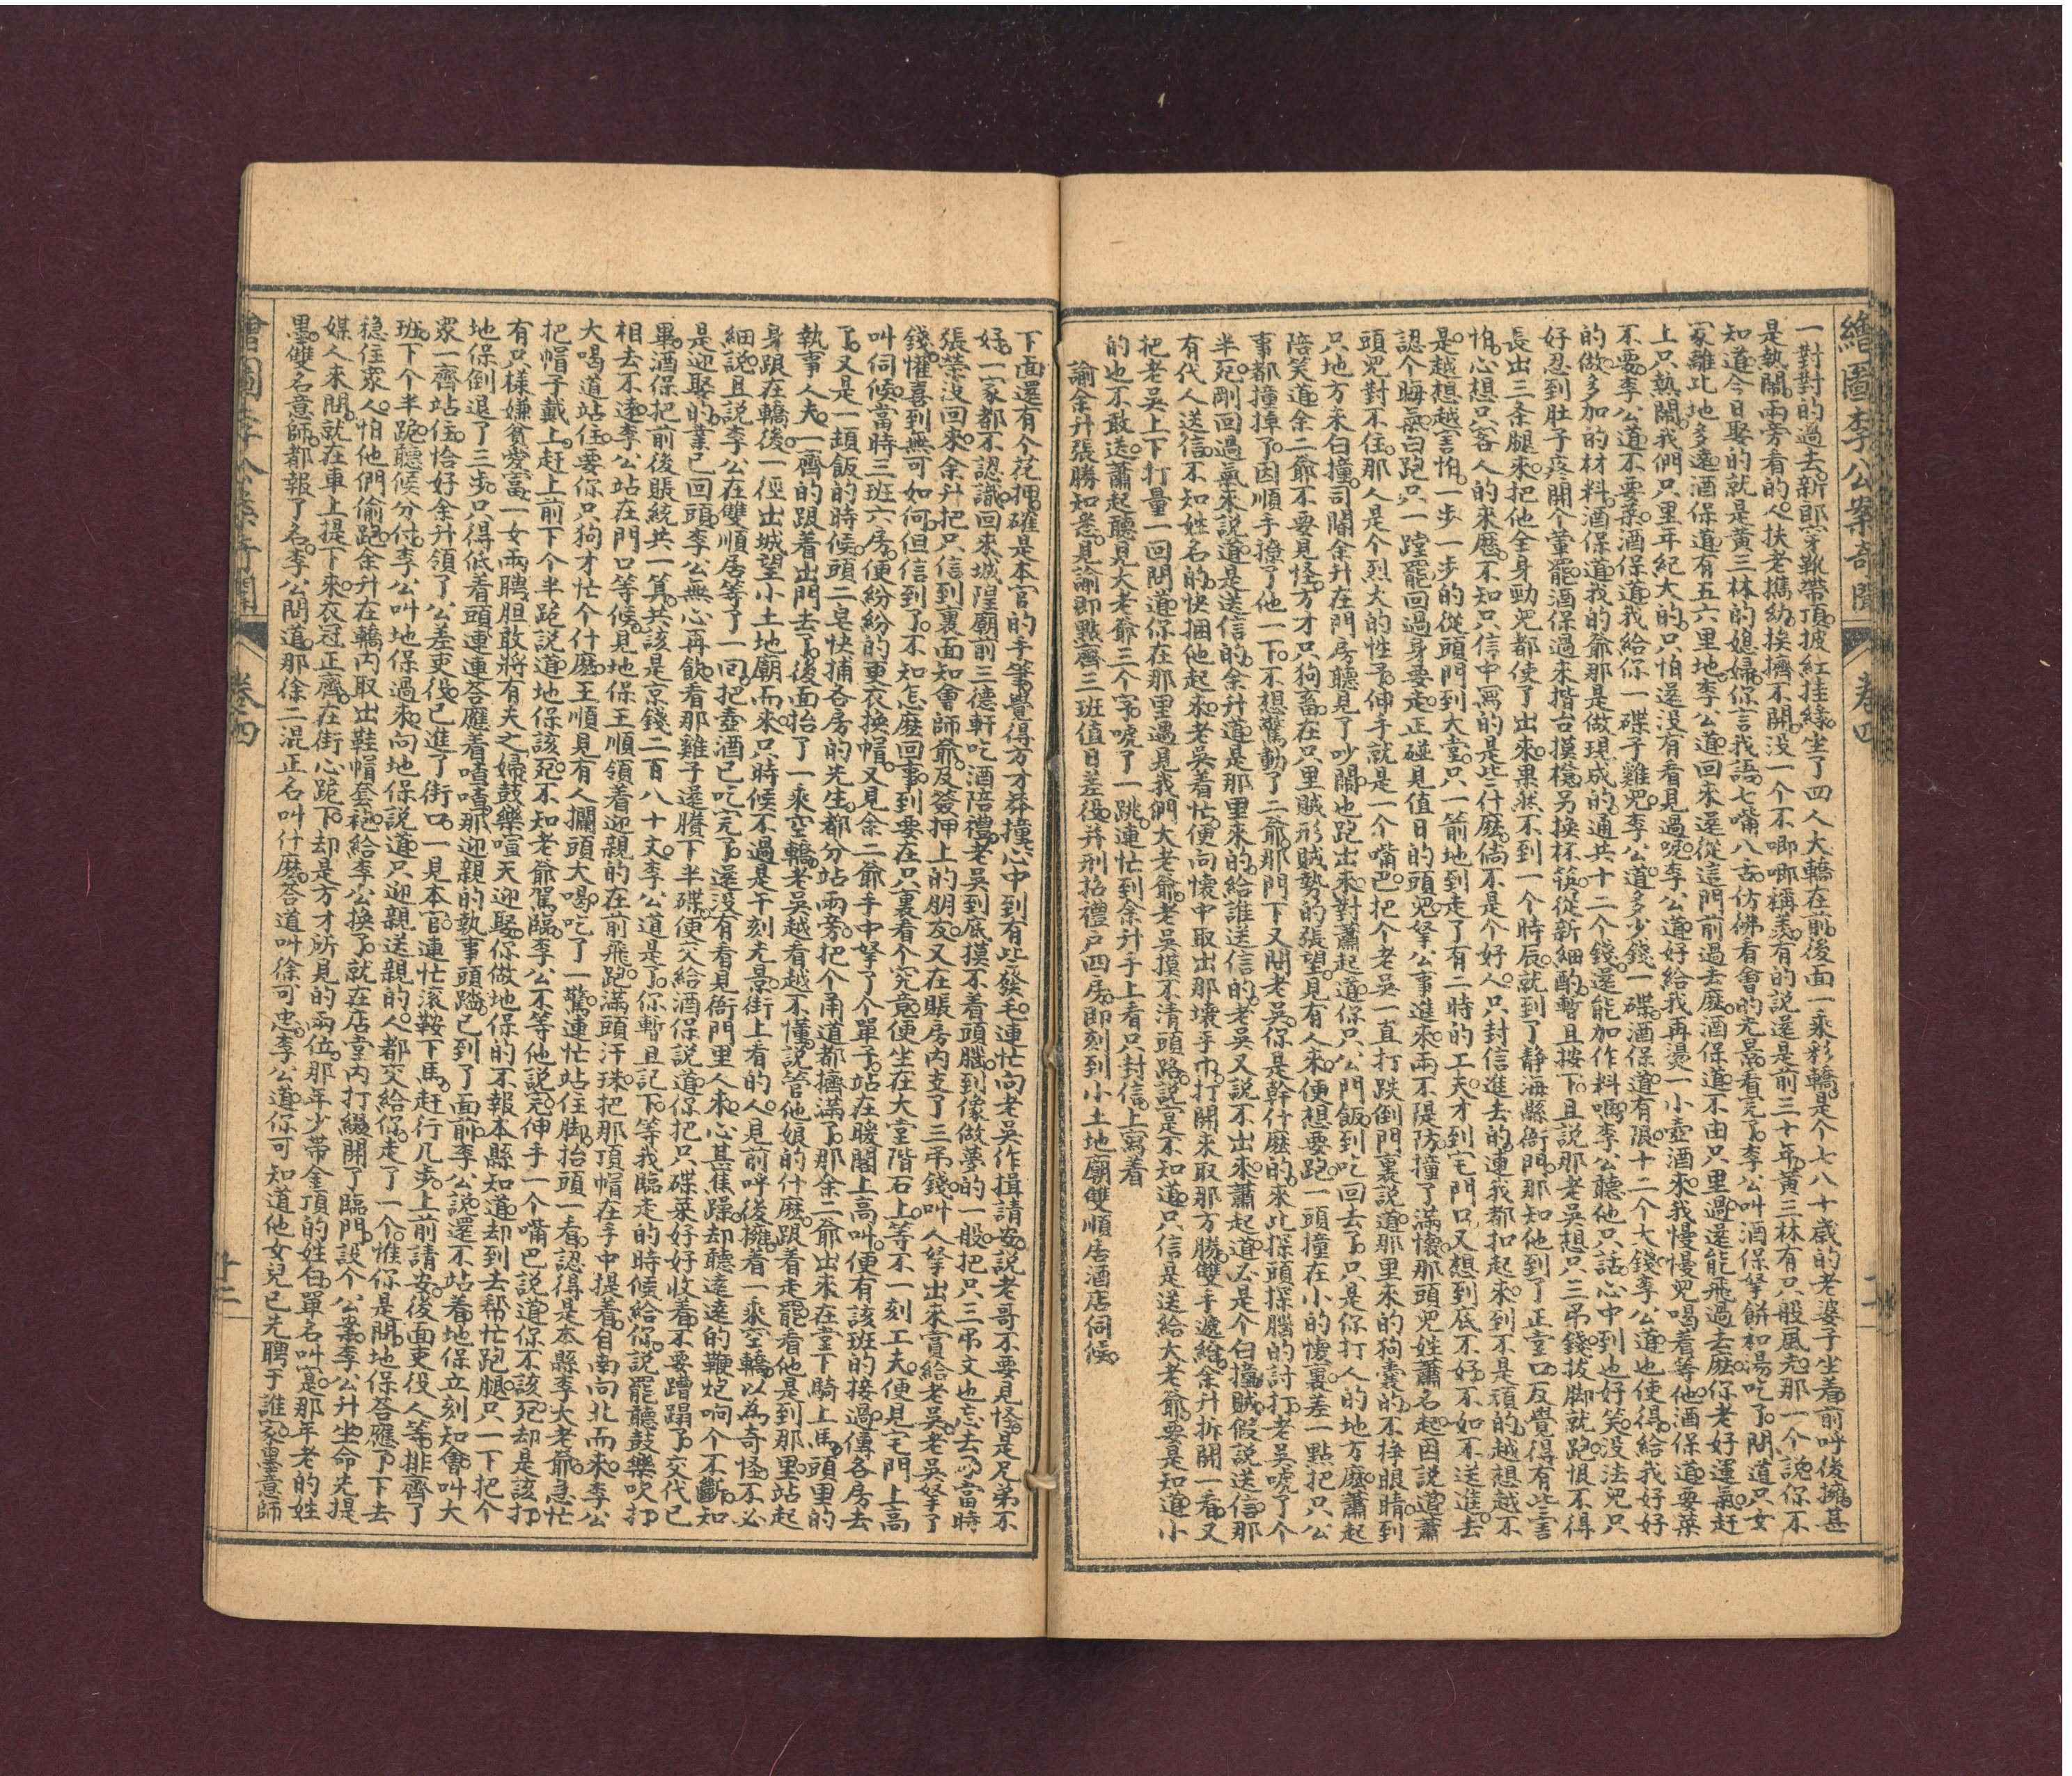 繪圖李公案奇聞
卷四
一對對的過去。新郎穿靴帶頂。披紅挂綠。坐了四人大轎在前。後面一乘彩轎。是个七八十歲的老婆子坐着。前呼後擁。甚
是熱鬧。兩旁看的人。扶老攜幼。挨擠不開。没一个不唧唧稱羨。有的說還是前三十年。黃三林有只般風光。那一个說。你不
知道今日娶的就是黃三林的媳婦。你言我語。七嘴八舌。仿彿看會的光景。看完了。李公叫酒保拏餅和湯吃了。問道只女
家離此地多遠。酒保道。有五六里地。李公道。回來還從這門前過去麽。酒保道。不由只里過。還能飛過去麽。你老好運氣。赶
上只熱鬧。我們只里年紀大的。只怕還没有看見過呢。李公道。好給我再燙一小壺酒來。我慢慢兒喝着等他。酒保道。要菜
不要。李公道。不要菜。酒保道。我給你一碟子雞兜。李公道。多少錢一碟。酒保道。有限。十二个大錢。李公道也使得。給我好好
的做。多加的材料。酒保道。我的爺。那是做現成的。通共十二个錢。還能加作料嗎。李公聽他只話。心中到也好笑。没法兒。只
好忍到肚子疼。開个葷罷。酒保過來揩台摸檯。另換杯筷。從新細酌。暫且按下。且說那老吳想只三吊錢。拔脚就跑。恨不得
長出三条腿來。把他全身勁兒都使了出來。果然不到一个時辰。就到了静海縣衙門。那知他到了正堂口。反覺得有些害
怕。心想只客人的來歷。不知只信中寫的是些什麽。倘不是个好人。只封信進去的。連我都扣起來。到不是頑的。越想越不
是。越想越害怕。一步一步的從頭門到大堂。只一箭地。到走了有二時的工夫。才到宅門口。又想到底不好。不如不送進去
認个晦氣。白跑只一蹚罷。回過身要走。正碰見值日的頭兒拏公事進來。兩不隄防。撞了滿懷。那頭兒姓蕭名起。因說道。蕭
頭兒對不住。那人是个烈火的性子。伸手就是一个嘴巴。把个老吳一直打跌倒門裏。說道。那里來的狗囊的。不掙眼睛。到
只地方來白撞。司閽余升在門房聽見了吵鬧。也跑出來。對蕭起道。你只公門飯到吃回去了。只是你打人的地方麽。蕭起
陪笑道。余二爺不要見怪。方才只狗畜在只里賊形賊勢的張望。見有人來。便想要跑。一頭撞在小的懷裏。差一點把只公
事都撞掉了。因順手撩了他一下。不想驚動了二爺。那門下又問老吳。你是幹什麽的。來此探頭探腦的討打。老吳唬了个
半死。剛回過氣來。說道。是送信的。余升道。是那里來的。給誰送信的。老吳又說不出來。蕭起道。必是个白撞賊。假說送信。那
有代人送信。不知姓名的。快捆他起來。老吳着忙。便向懷中取出那壞手巾。打開來取那方勝。雙手遞給余升。拆開一看。又
把老吳上下打量一回。問道。你在那里遇見我們大老爺。老吳摸不清頭路。說是不知道。只信是送給大老爺。要是知道。小
的也不敢送。蕭起聽見大老爺三个字。唬了一跳。連忙到余升手上看只封信。上寫着
諭余升張勝知悉。見諭即點齊三班值日差役。并刑招禮戶四房。即刻到小土地廟雙順居酒店伺候。
下面還有个花押。確是本官的手筆。覺得方才莽撞。心中到有些發毛。連忙向老吳作揖請安。說老哥不要見怪。是兄弟不
好。一家都不認識。回來城隍廟前三德軒吃酒陪禮。老吳到底摸不着頭腦。到像做夢的一般。把只三吊文也忘去了。當時
張榮没回來。余升把只信到裏面知會師爺。及簽押上的朋友。又在賬房内支了三吊錢。叫人拏出來賞給老吳。老吳拏了
錢。懽喜到無可如何。但信到了。不知怎麽回事。到要在只裏看个究竟。便坐在大堂階石上等。不一刻工夫。便見宅門上高
叫伺候。當時三班六房。便紛紛的更衣換帽。又見余二爺手中拏了个單子。站在暖閣上高叫。便有該班的接過。傳各房去
了。又是一頓飯的時候。頭二皂快捕各房的先生。都分站兩旁。把个甬道都擠滿了。那余二爺出來。在堂下騎上馬。頭里的
執事人夫。一齊的跟着出門去了。後面抬了一乘空轎。老吳越看越不懂。說管他娘的什麽。跟着走罷。看他是到那里。站起
身跟在轎後。一徑出城。望小土地廟而來。只時候不過是午刻光景。街上看的人。見前呼後擁着一乘空轎。以為奇怪。不必
細說。且說李公在雙順居等了一回。把壺酒已吃完了。還没有看見衙門里人來。心甚焦躁。却聽遠遠的鞭炮响个不斷。知
是迎娶的。業已回頭。李公無心再飲。看那雞子還賸下半碟。便交給酒保說道。你把只碟菜好好收着。不要蹧蹋了。交代已
畢。酒保把前後賬統共一算。共該是京錢二百八十文。李公道是了。你暫且記下。等我臨走的時候給你。說罷聽鼓樂吹打
相去不遠。李公站在門口等候。見地保王順領着迎親的在前飛跑。滿頭汗珠。把那頂帽在手中提着。自南向北而來。李公
大喝道。站住。要你只狗才忙个什麽。王順見有人攔頭大喝。吃了一驚。連忙站住脚。抬頭一看。認得是本縣李大老爺。急忙
把帽子戴上。赶上前下个半跪說道。地保該死。不知老爺駕臨。李公不等他說完。伸手一个嘴巴說道。你不該死。却是該打。
有只樣嫌貧愛富。一女兩聘。胆敢將有夫之婦。鼓樂喧天迎娶。你做地保的。不報本縣知道。却到去帮忙跑腿。只一下把个
地保倒退了三步。只得低着頭。連連答應着喳喳。那迎親的執事頭踏。已到了面前。李公說還不站着。地保立刻知會。叫大
家一齊站住。恰好余升領了公差吏役。已進了街口。一見本官。連忙滚鞍下馬。赶行几步。上前請安。後面吏役人等。排齊了
班。下个半跪。聽候分付。李公叫地保過來。向地保說道。只迎親送親的人。都交給你。走了一个。惟你是問。地保答應了下去
穩住眾人。怕他們偷跑。余升在轎内取出鞋帽套褂。給李公換了。就在店堂内打綴開了臨門。設个公案。李公升坐。命先提
媒人來問。就在車上提下來。衣冠正齊。在街心跪下。却是方才所見的兩位。那年少帶金頂的。姓白。單名叫寔。那年老的。姓
墨。雙名意師。都報了名。李公問道。那徐二混正名叫什麽。答道叫徐可忠。李公道。你可知道他女兒已先聘于誰家。墨意師
繪圖李公案奇聞
卷四
廿二